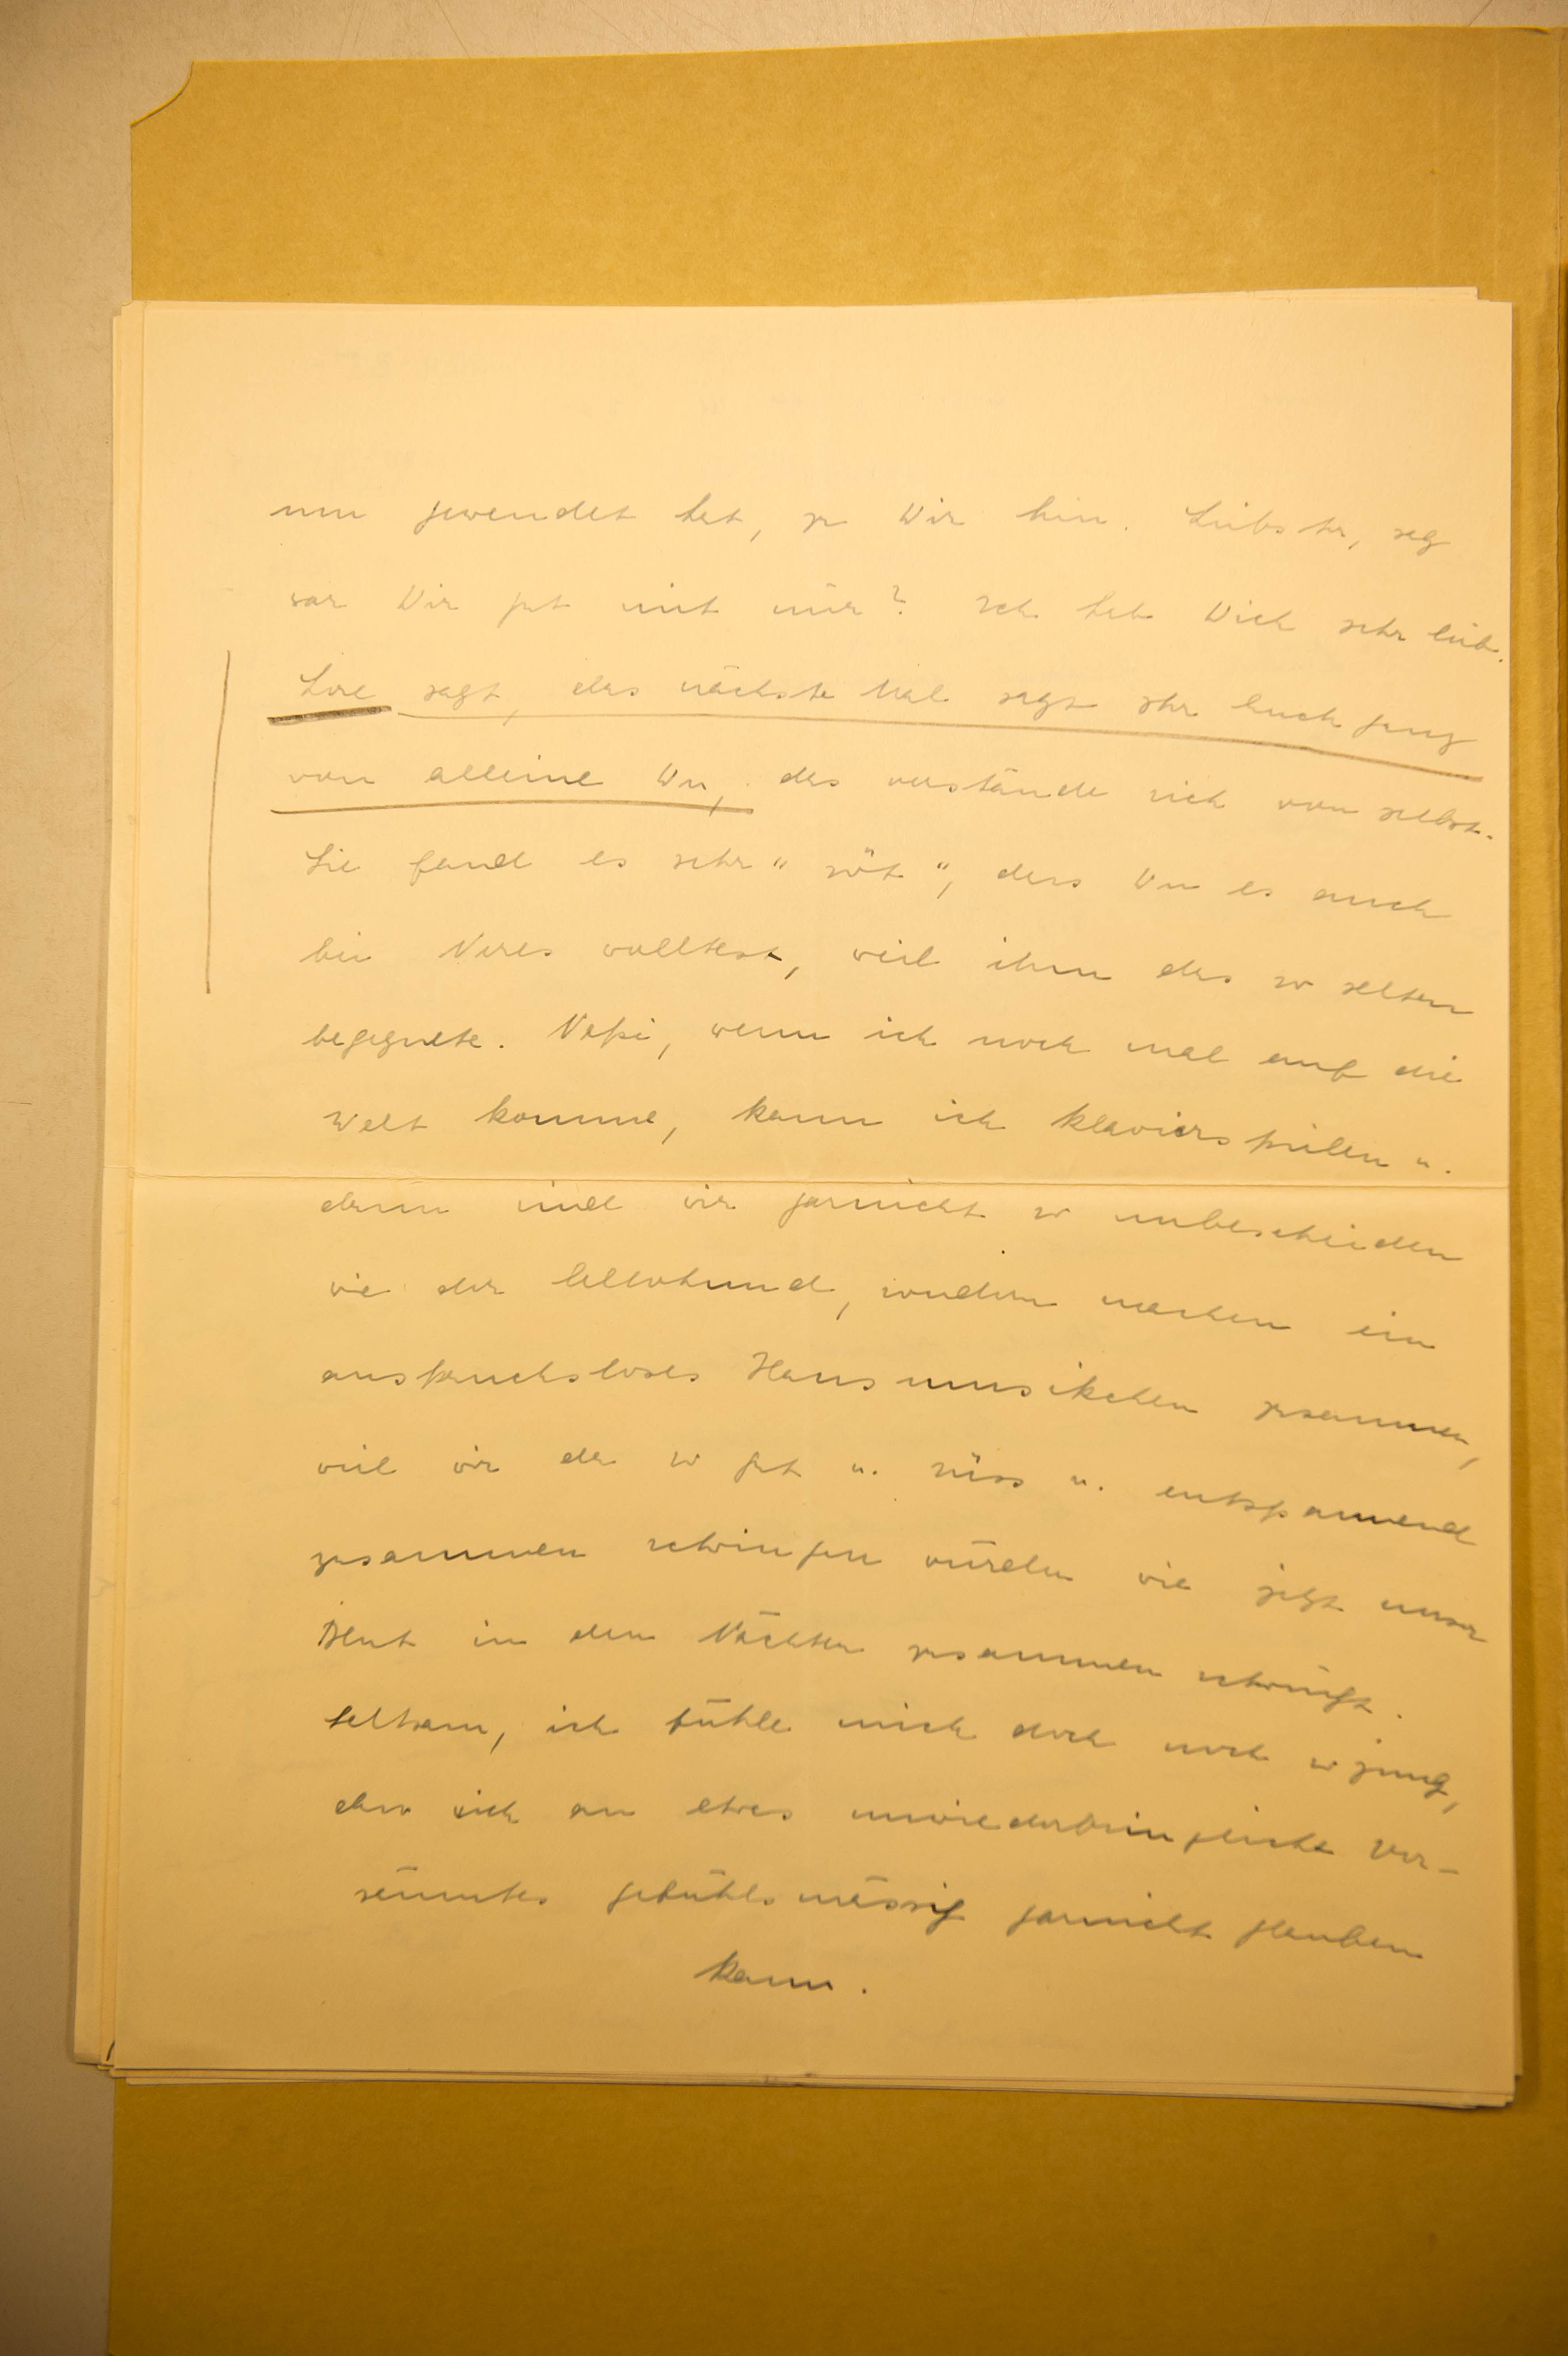 nun gewendet hat, zu Dir hin. Liebster, sag
war Dir gut mit mir? Ich hab Dich sehr lieb.
Lore sagt, das nächste Mal sagt Ihr Euch ganz
von alleine Du, das verstände sich von selbst.
Sie fand es sehr " söt ", dass Du es auch
bei wolltest, weil ihm das so selten
begegnete. wenn ich noch mal auf die
Welt komme, kann ich Klavierspielen u.
dann sind wir garnicht so unbescheiden
wie der Cellohund, sondern machen ein
anspruchsloses Hausmusikchen zusammen,
weil wir da so gut u. süss u. entspannend
zusammen schwingen würden wie jetzt unser
Blut in den Nächten zusammen schwingt.
Seltsam, ich fühle mich doch noch so jung,
dass ich an etwas unwiederbringlich Ver-
säumtes gefühlsmässig garnicht glauben
kann.